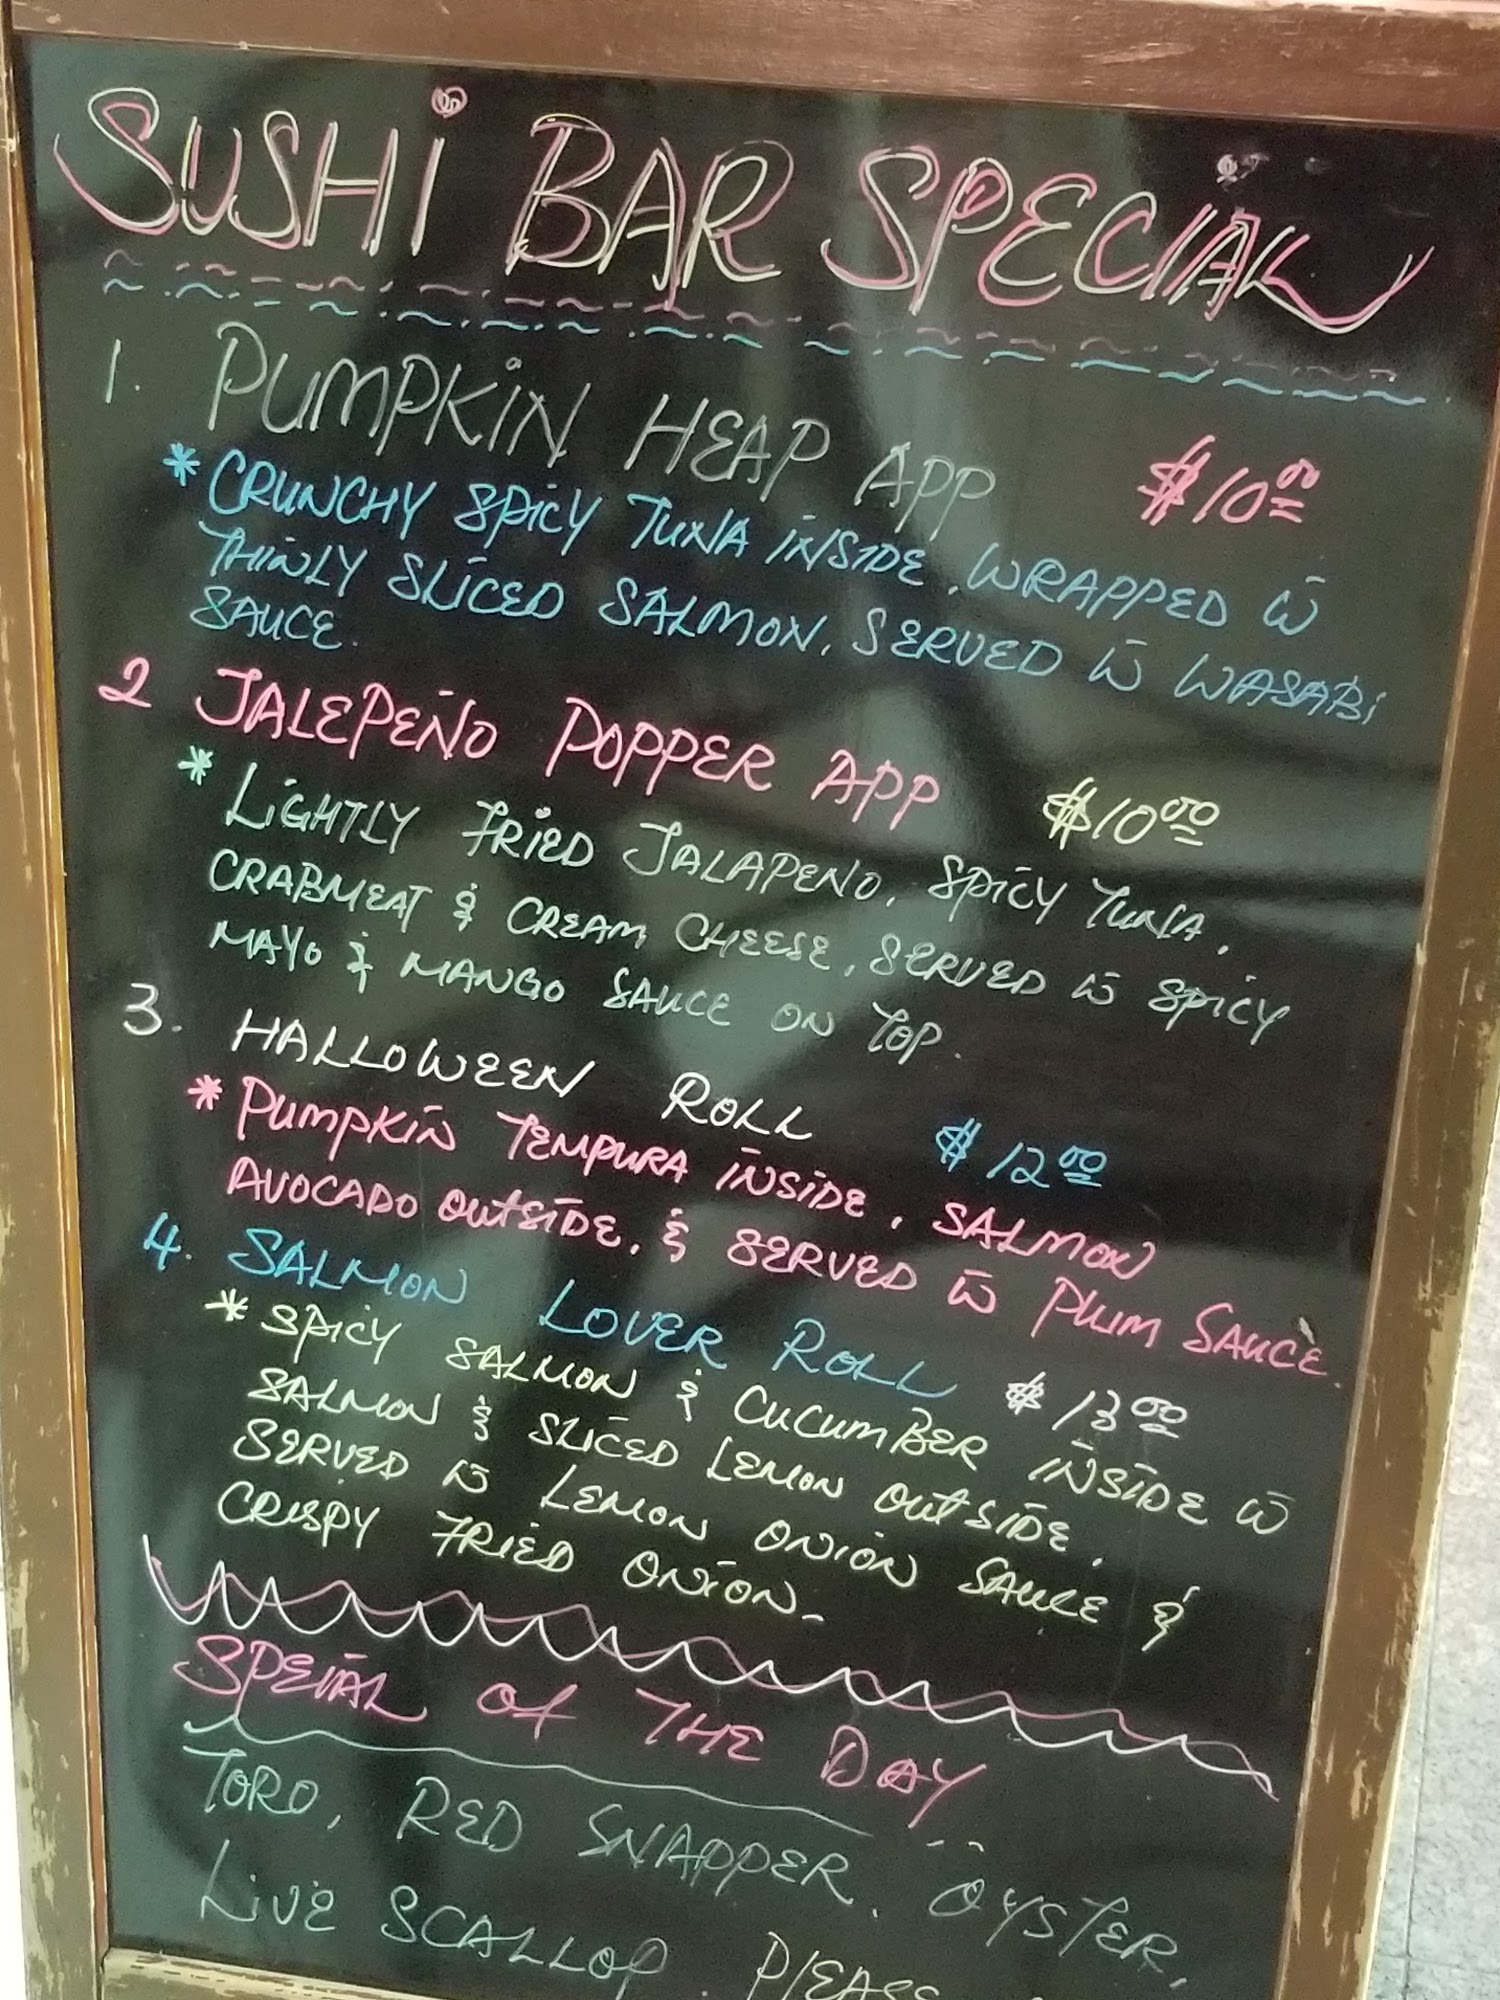 SUSHI BAR SPECIAL
1. PUMPKIN HEAP APP $10.00
* CRUNCHY SPICY TUNA INSIDE, WRAPPED W
THINLY SLICED SALMON, SERVED W WASABI
SAUCE.
2 JALEPEÑO POPPER APP $10.00
* LIGHTLY FRIED JALAPENO, SPICY TUNA,
CRABMEAT & CREAM CHEESE, SERVED W SPICY
MAYO & MANGO SAUCE ON TOP.
3. HALLOWEEN ROLL $12.00
* PUMPKIN TEMPURA INSIDE, SALMON
AVOCADO OUTSIDE, & SERVED W PLUM SAUCE
4. SALMON LOVER ROLL $13.00
* SPICY SALMON & CUCUMBER INSIDE W
SALMON & SLICED LEMON OUTSIDE,
SERVED W LEMON ONION SAUCE &
CRISPY FRIED ONION.
SPECIAL OF THE DAY
TORO, RED SNAPPER, OYSTER,
LIVE SCALLOP,